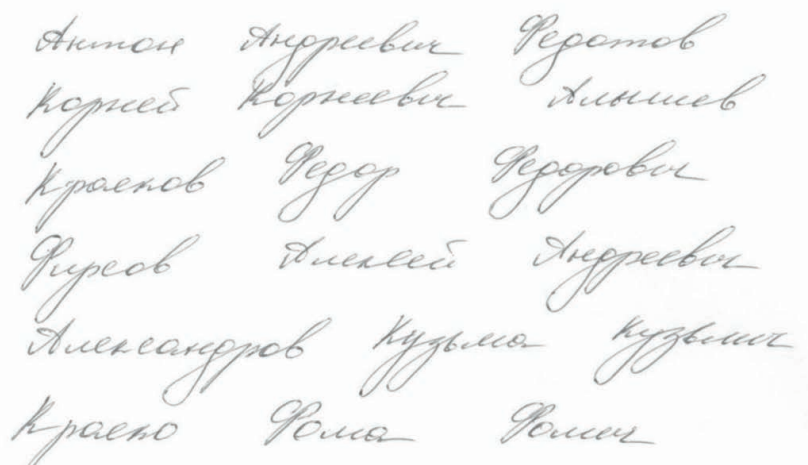 Антон Андреевич Федотов
Корней Корнеевич Алышев
Краснов Федор Федорович
Фирсов Алексей Андреевич
Александров Кузьма Кузьмич
Краско Фома Фомич